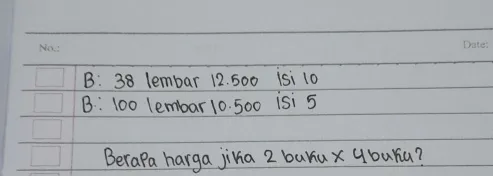 No.: Date:
B: 38 lembar 12.500 isi 10
B: 100 lembar 10.500 isi 5
Berapa harga jika 2 buku x 4 buku?